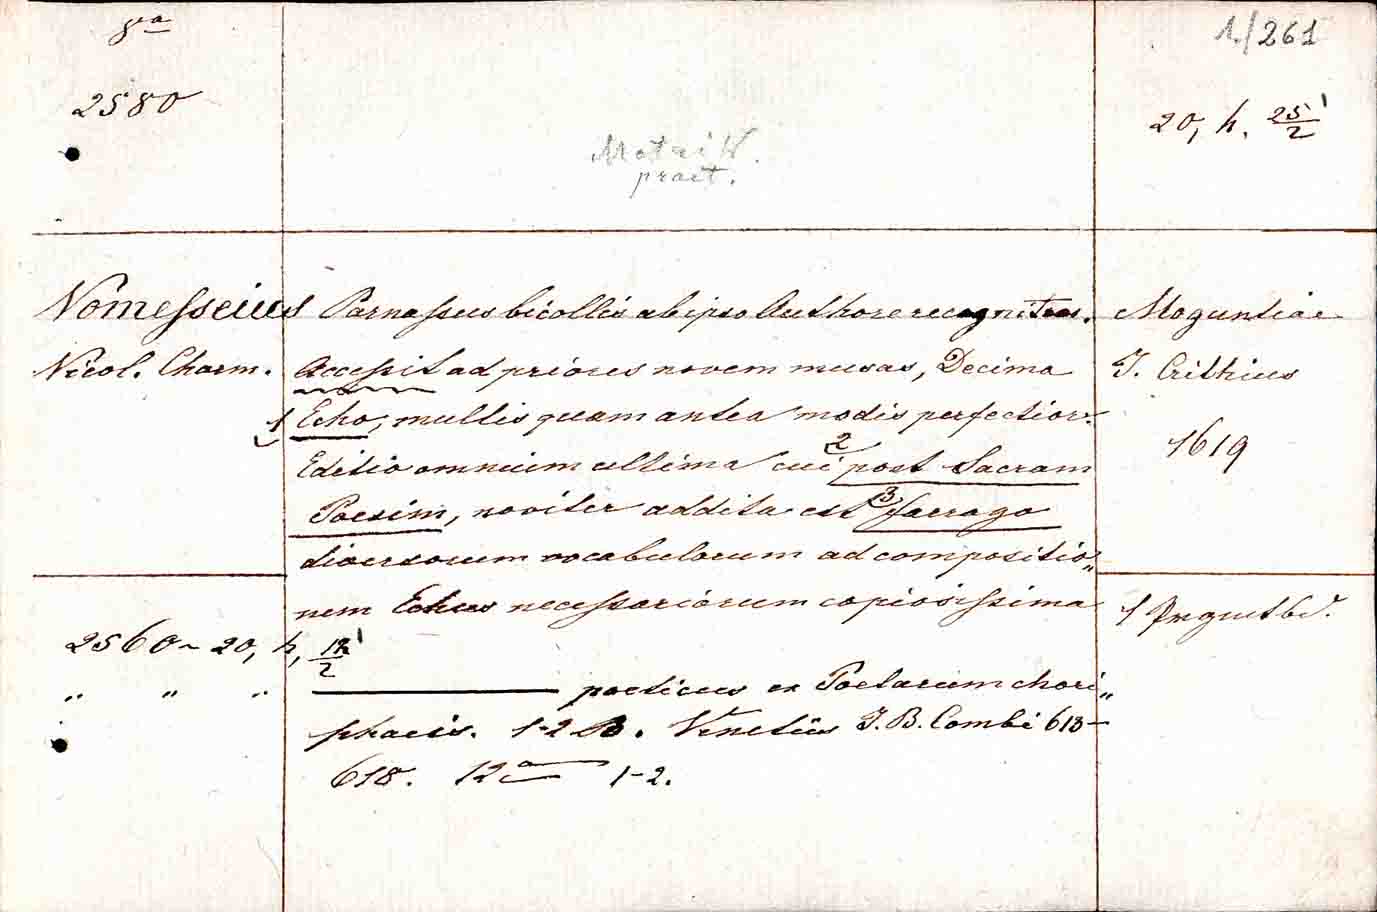 8va
1./261
2580
20, h. 25'/2
praet.
Nomesseius
Nicol. Charm.
Parnassus bicollis ab ipso Authore recognitus.
Accessit ad priores novem musas, Decima
1 Echo, multis quam antea modis perfectior.
Editio omnium ultima cui 2 post Sacram
Poesim, noviter addita est 3 farrago
diversorum vocabulorum ad compositio„
nem Echus necessariorum copiosissima
Moguntiae
J. Crithius
1619
2560 - 20, h, 12'/2
„ „ „
poeticus ex Poetarum chori„
phaeis. 1-2 B. Venetiis J. B. Combi 613-
618. 12° 1-2.